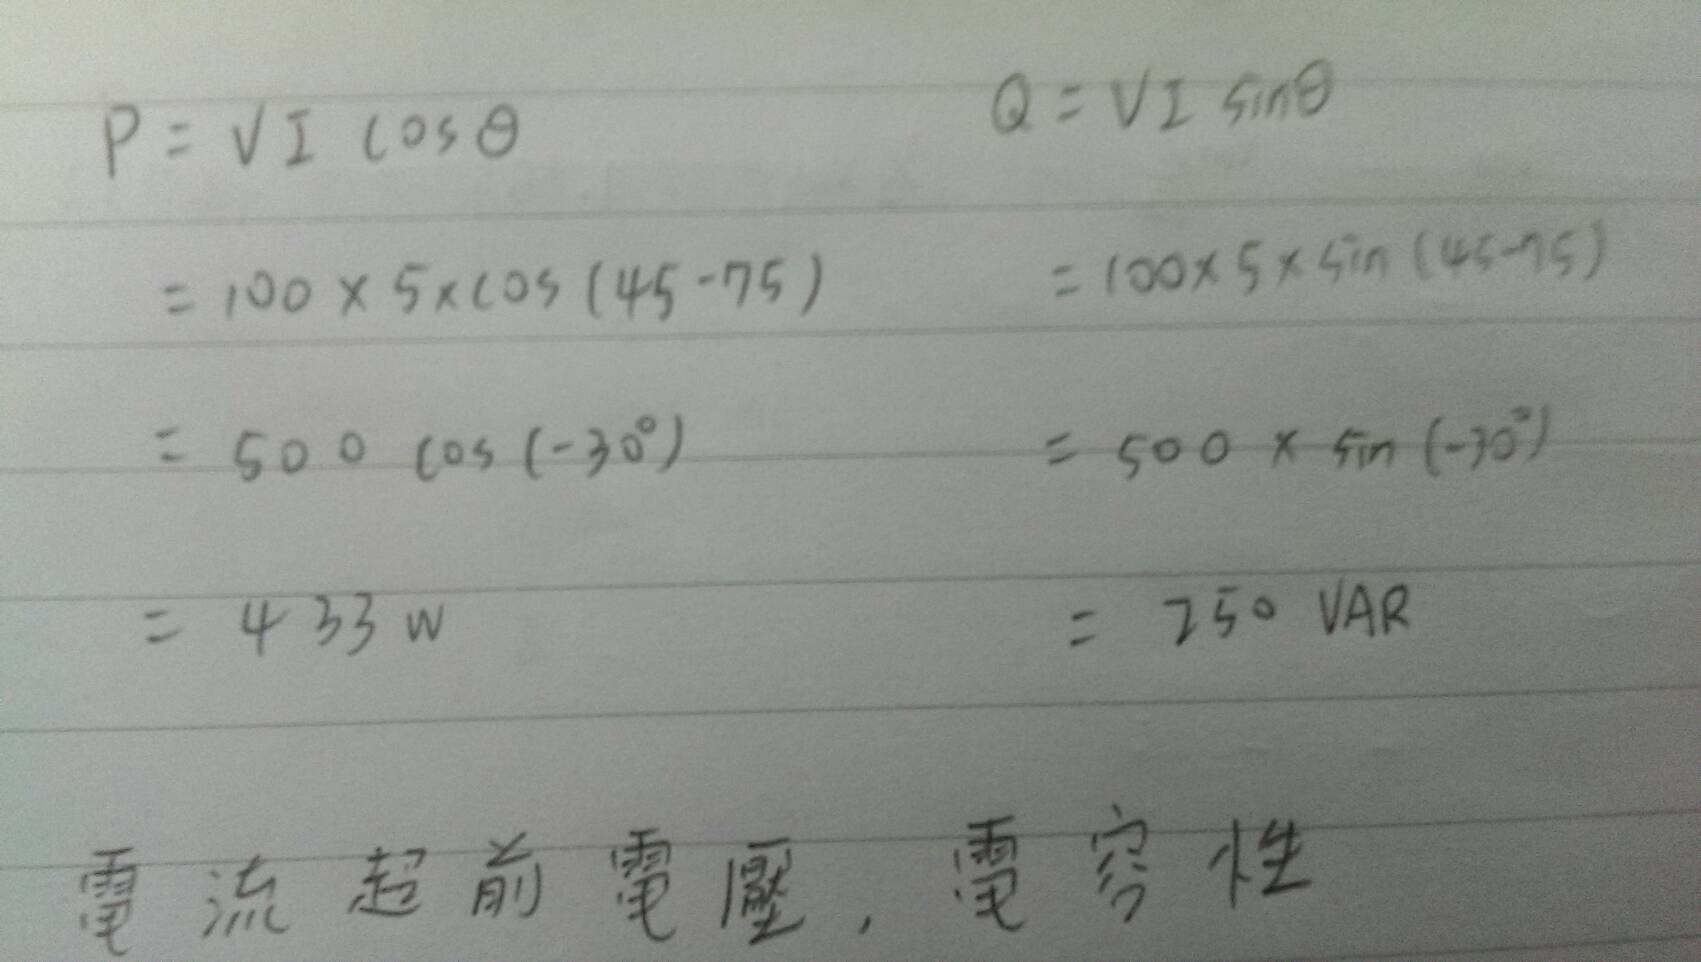 P = VI cosθ
= 100 × 5 × cos (45-75)
= 500 cos (-30°)
= 433 W
Q = VI sinθ
= 100 × 5 × sin (45-75)
= 500 × sin (-30°)
= 250 VAR
電流超前電壓,電容性